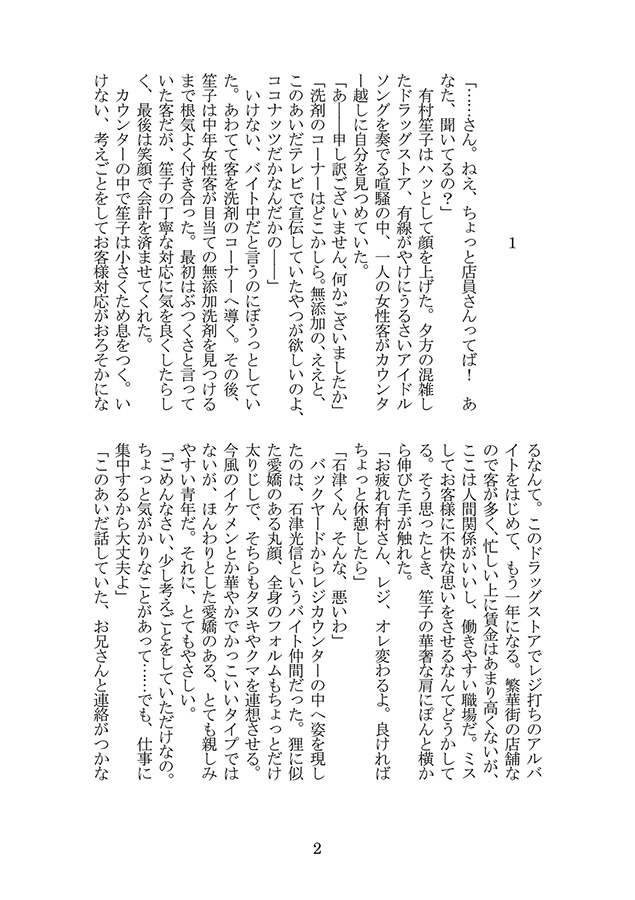 1
「……さん。ねえ、ちょっと店員さんってば！　あ
なた、聞いてるの？」
　有村笙子はハッとして顔を上げた。夕方の混雑し
たドラッグストア、有線がやけにうるさいアイドル
ソングを奏でる喧騒の中、一人の女性客がカウンタ
ー越しに自分を見つめていた。
「あ――申し訳ございません、何かございましたか」
「洗剤のコーナーはどこかしら。無添加の、ええと、
このあいだテレビで宣伝していたやつが欲しいのよ、
ココナッツだかなんだかの――」
　いけない、バイト中だと言うのにぼうっとしてい
た。あわてて客を洗剤のコーナーへ導く。その後、
笙子は中年女性客が目当ての無添加洗剤を見つける
まで根気よく付き合った。最初はぶつくさと言って
いた客だが、笙子の丁寧な対応に気を良くしたらし
く、最後は笑顔で会計を済ませてくれた。
　カウンターの中で笙子は小さくため息をつく。い
けない、考えごとをしてお客様対応がおろそかにな
るなんて。このドラッグストアでレジ打ちのアルバ
イトをはじめて、もう一年になる。繁華街の店舗な
ので客が多く、忙しい上に賃金はあまり高くないが、
ここは人間関係がいいし、働きやすい職場だ。ミス
してお客様に不快な思いをさせるなんてどうかして
る。そう思ったとき、笙子の華奢な肩にぽんと横か
ら伸びた手が触れた。
「お疲れ有村さん、レジ、オレ変わるよ。良ければ
ちょっと休憩したら」
「石津くん、そんな、悪いわ」
　バックヤードからレジカウンターの中へ姿を現し
たのは、石津光信というバイト仲間だった。狸に似
た愛嬌のある丸顔、全身のフォルムもちょっとだけ
太りじしで、そちらもタヌキやクマを連想させる。
今風のイケメンとか華やかでかっこいいタイプでは
ないが、ほんわりとした愛嬌のある、とても親しみ
やすい青年だ。それに、とてもやさしい。
「ごめんなさい、少し考えごとをしていただけなの。
ちょっと気がかりなことがあって……でも、仕事に
集中するから大丈夫よ」
「このあいだ話していた、お兄さんと連絡がつかな
2